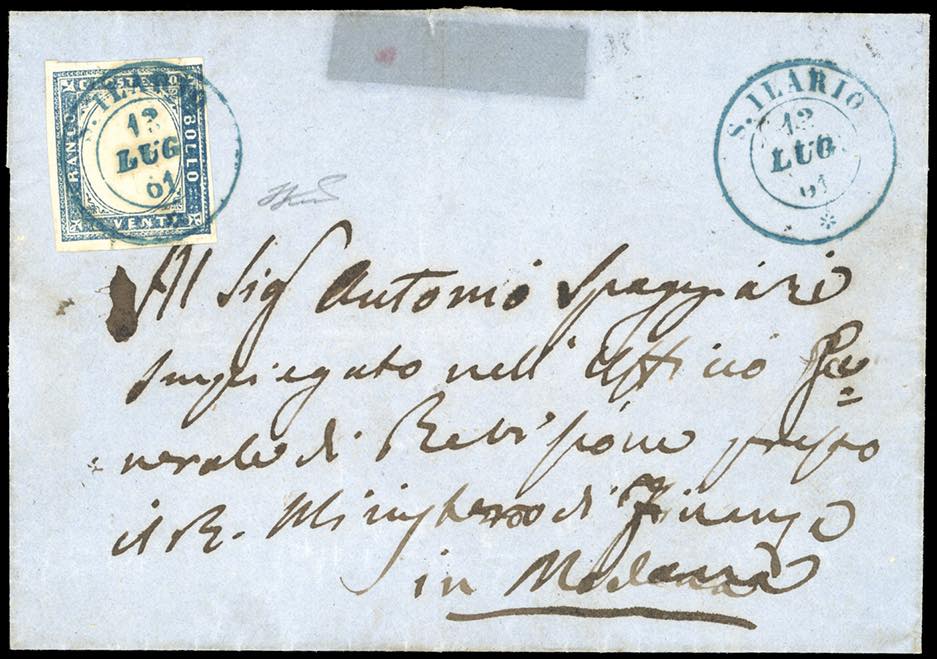 FRANCO
C. POSTALE 20
BOLLO
C. VENTI
S. ILARIO
12
LUG
61
S. ILARIO
12
LUG
61
Al Sig Antonio Spaggiari
Impiegato nell' Ufficio Ge=
nerale di Revisione presso
il R. Ministero di Finanza
in Modena